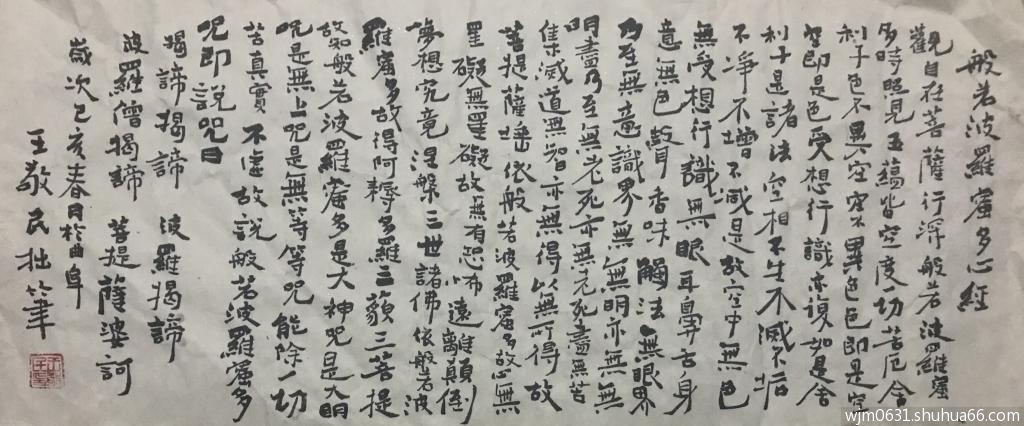 般若波羅蜜多心經
觀自在菩薩行深般若波羅蜜
多時照見五蘊皆空度一切苦厄舍
利子色不異空空不異色色即是空
空即是色受想行識亦復如是舍
利子是諸法空相不生不滅不垢
不淨不增不減是故空中無色
無受想行識無眼耳鼻舌身
意無色聲香味觸法無眼界
乃至無意識界無無明亦無無
明盡乃至無老死亦無老死盡無苦
集滅道無智亦無得以無所得故
菩提薩埵依般若波羅蜜多故心無
罣礙無罣礙故無有恐怖遠離顛倒
夢想究竟涅槃三世諸佛依般若波
羅蜜多故得阿耨多羅三藐三菩提
故知般若波羅蜜多是大神咒是大明
咒是無上咒是無等等咒能除一切
苦真實不虛故說般若波羅蜜多
咒即說咒曰
揭諦揭諦 波羅揭諦
波羅僧揭諦 菩提薩婆訶
歲次己亥春月於曲阜
王敬民拙筆
wjm0631.shuhua66.com